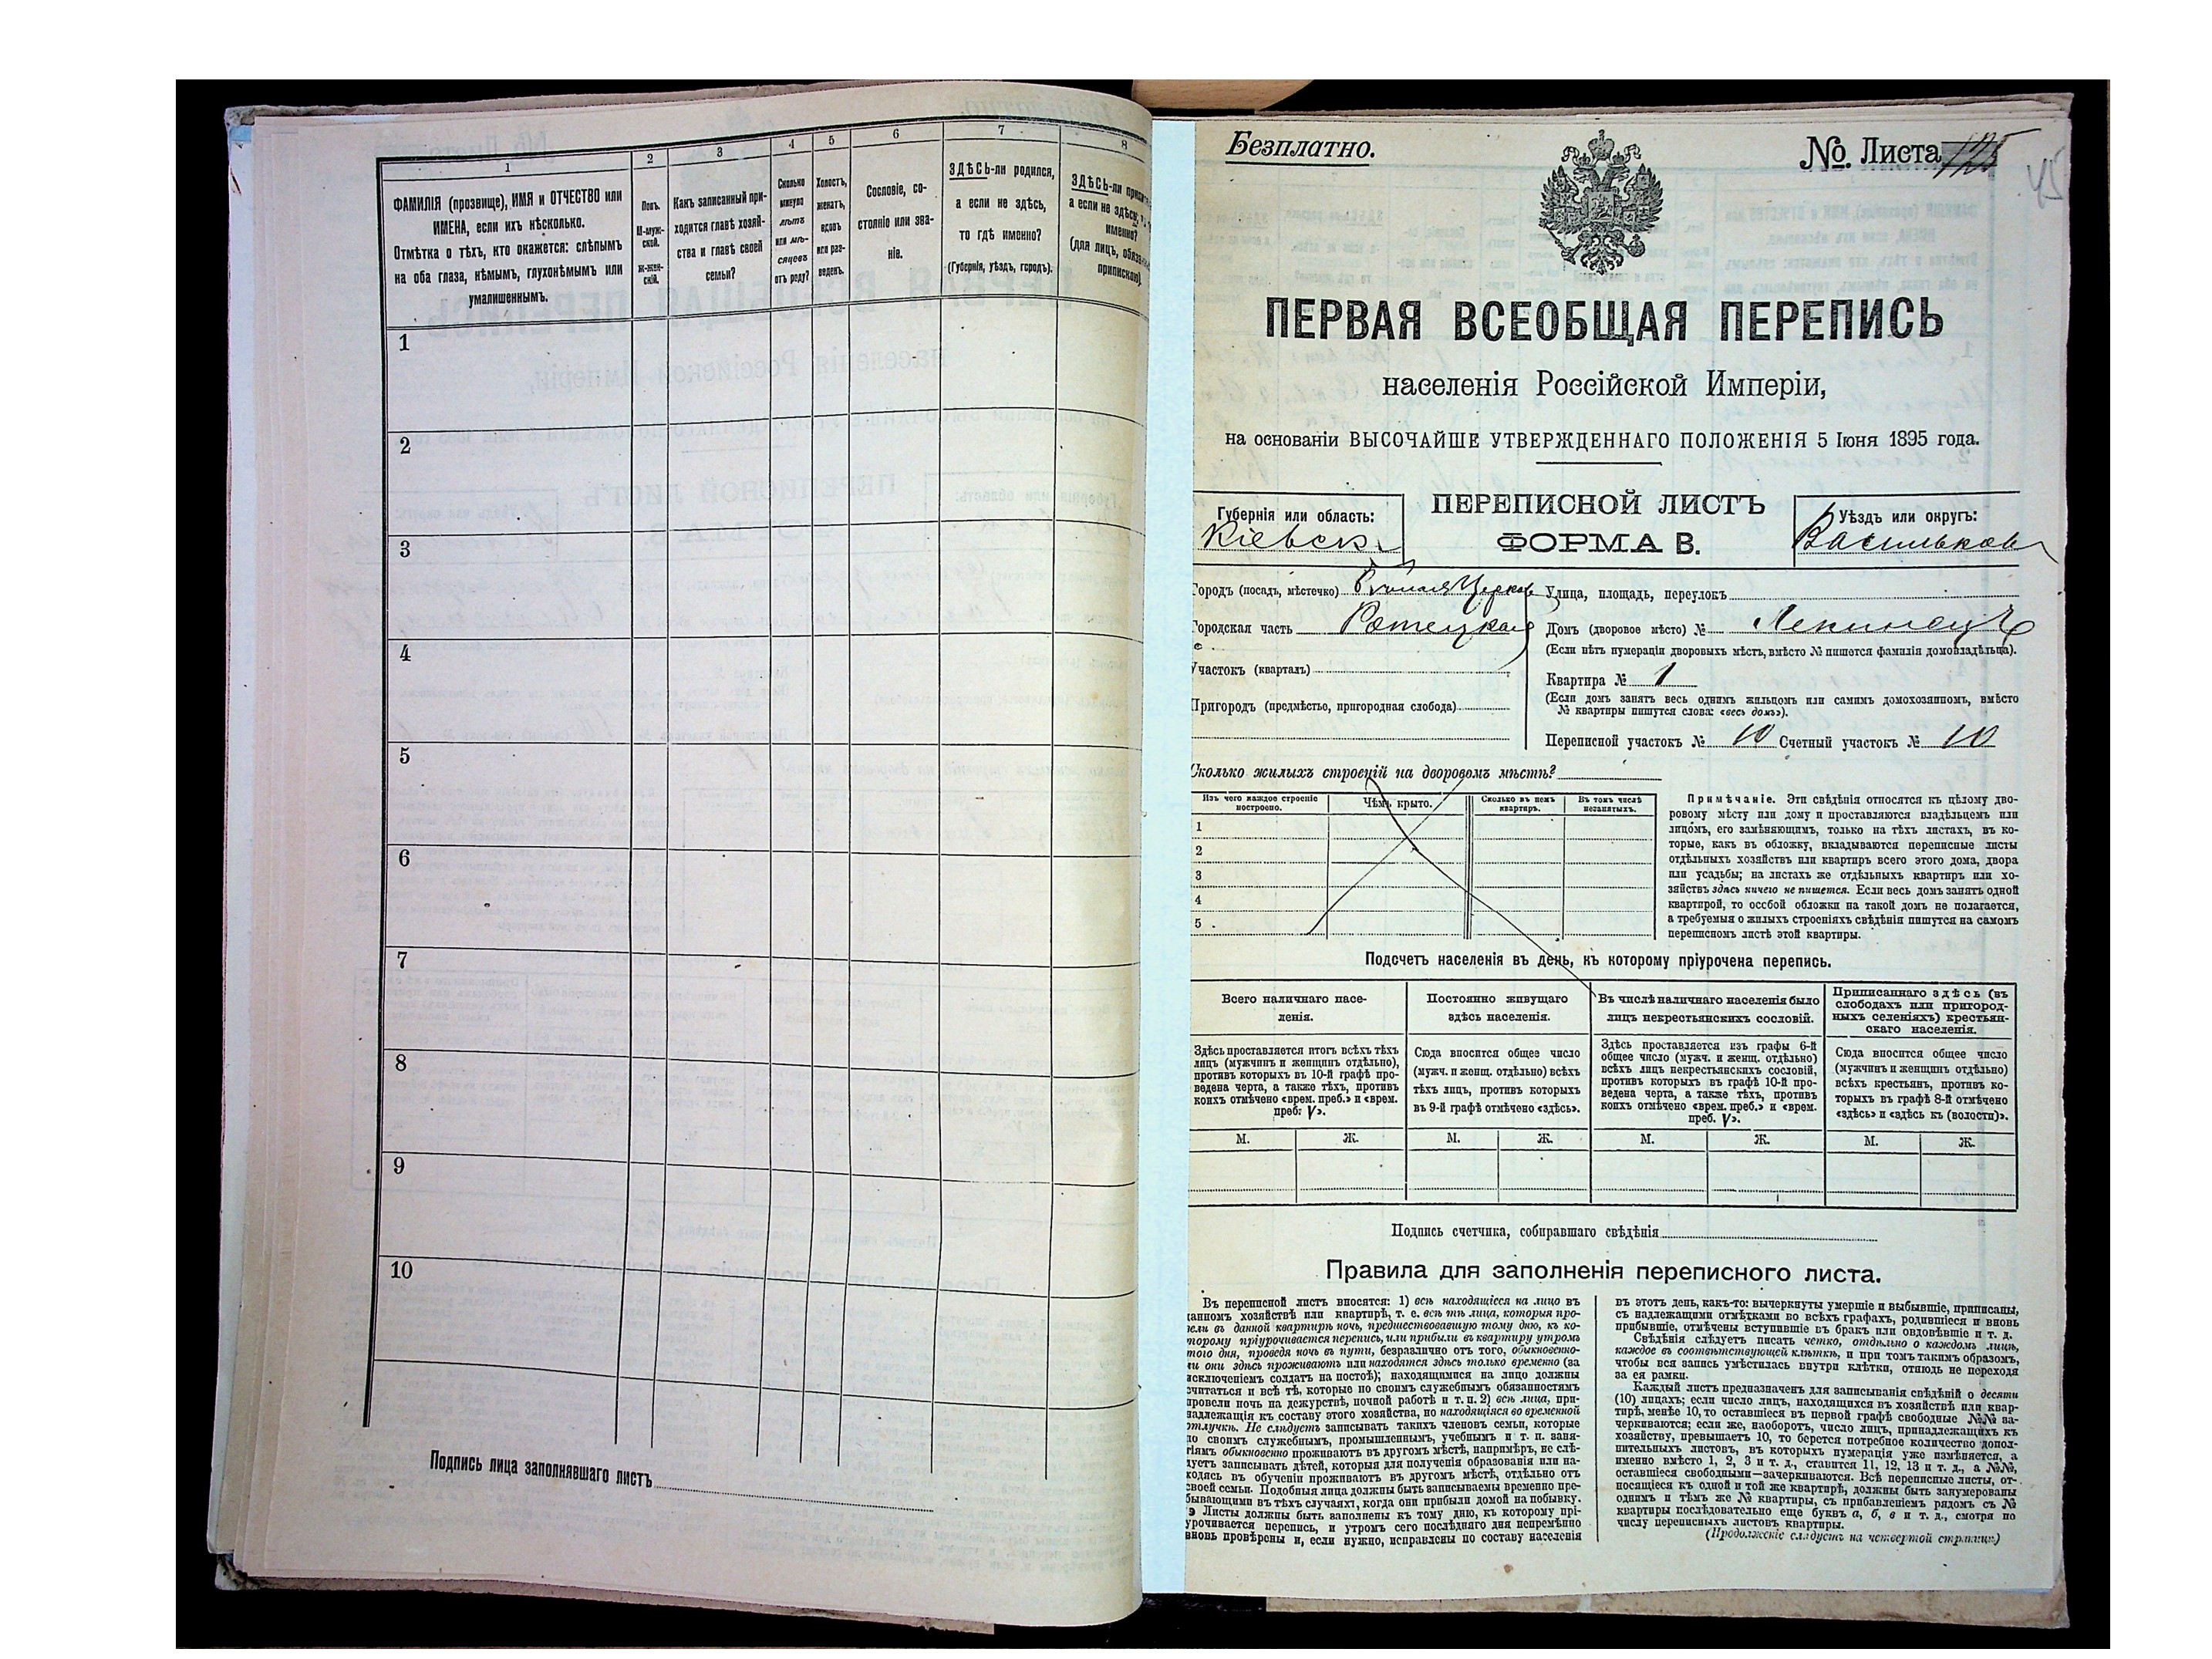 1
2
3
4
5
6
7
8
ФАМИЛІЯ (прозвище), ИМЯ и ОТЧЕСТВО или
ИМЕНА, если ихъ нѣсколько.
Отмѣтка о тѣхъ, кто окажется: слѣпымъ
на оба глаза, нѣмымъ, глухонѣмымъ или
умалишеннымъ.
Полъ.
М-муж-
ской.
ж-жен-
скій.
Какъ записанный при-
ходится главѣ хозяй-
ства и главѣ своей
семьи?
Сколько
минуло
лѣтъ
или мѣ-
сяцевъ
отъ роду?
Холостъ,
женатъ,
вдовъ
или раз-
веденъ.
Сословіе, со-
стояніе или зва-
ніе.
ЗДѢСЬ-ли родился,
а если не здѣсь,
то гдѣ именно?
(Губернія, уѣздъ, городъ).
ЗДѢСЬ-ли
а если не здѣсь,
именно?
(для лицъ,
припискою).
1
2
3
4
5
6
7
8
9
10
Подпись лица заполнявшаго листъ
Безплатно.
№ Листа 125
ПЕРВАЯ ВСЕОБЩАЯ ПЕРЕПИСЬ
населенія Россійской Имперіи,
на основаніи ВЫСОЧАЙШЕ УТВЕРЖДЕННАГО ПОЛОЖЕНІЯ 5 Іюня 1895 года.
Губернія или область:
Кіевск.
ПЕРЕПИСНОЙ ЛИСТЪ
ФОРМА В.
Уѣздъ или округъ:
Васильков
Городъ (посадъ, мѣстечко) Бѣлая Церковь
Городская часть
Участокъ (кварталъ)
Пригородъ (предмѣстье, пригородная слобода)
Улица, площадь, переулокъ
Домъ (дворовое мѣсто) №
(Если нѣтъ нумераціи дворовыхъ мѣстъ, вмѣсто № пишется фамилія домовладѣльца).
Квартира № 1
(Если домъ занятъ весь однимъ жильцомъ или самимъ домохозяиномъ, вмѣсто
№ квартиры пишутся слова: «весь домъ»).
Переписной участокъ № 10 Счетный участокъ № 10
Сколько жилыхъ строеній на дворовомъ мѣстѣ?
Изъ чего каждое строеніе
построено.
Чѣмъ крыто.
Сколько въ немъ
квартиръ.
Въ томъ числѣ
незанятыхъ.
1
2
3
4
5
Примѣчаніе. Эти свѣдѣнія относятся къ цѣлому дво-
ровому мѣсту или дому и проставляются владѣльцемъ или
лицомъ, его замѣняющимъ, только на тѣхъ листахъ, въ ко-
торые, какъ въ обложку, вкладываются переписные листы
отдѣльныхъ хозяйствъ или квартиръ всего этого дома, двора
или усадьбы; на листахъ же отдѣльныхъ квартиръ или хо-
зяйствъ здѣсь ничего не пишется. Если весь домъ занятъ одной
квартирой, то особой обложки на такой домъ не полагается,
а требуемыя о жилыхъ строеніяхъ свѣдѣнія пишутся на самомъ
переписномъ листѣ этой квартиры.
Подсчетъ населенія въ день, къ которому пріурочена перепись.
Всего наличнаго насе-
ленія.
Постоянно живущаго
здѣсь населенія.
Въ числѣ наличнаго населенія было
лицъ некрестьянскихъ сословій.
Приписаннаго здѣсь (въ
слободахъ или пригород-
ныхъ селеніяхъ) крестьян-
скаго населенія.
Здѣсь проставляется итогъ всѣхъ тѣхъ
лицъ (мужчинъ и женщинъ отдѣльно),
противъ которыхъ въ 10-й графѣ про-
ведена черта, а также тѣхъ, противъ
коихъ отмѣчено «врем. преб.» и «врем.
преб. V».
Сюда вносится общее число
(мужч. и женщ. отдѣльно) всѣхъ
тѣхъ лицъ, противъ которыхъ
въ 9-й графѣ отмѣчено «здѣсь».
Здѣсь проставляется изъ графы 6-й
общее число (мужч. и женщ. отдѣльно)
всѣхъ лицъ некрестьянскихъ сословій,
противъ которыхъ въ графѣ 10-й про-
ведена черта, а также тѣхъ, противъ
коихъ отмѣчено «врем. преб.» и «врем.
преб. V».
Сюда вносится общее число
(мужчинъ и женщинъ отдѣльно)
всѣхъ крестьянъ, противъ ко-
торыхъ въ графѣ 8-й отмѣчено
«здѣсь» и «здѣсь къ (волости)».
М. Ж. М. Ж. М. Ж. М. Ж.
Подпись счетчика, собиравшаго свѣдѣнія
Правила для заполненія переписного листа.
Въ переписной листъ вносятся: 1) всѣ находящіеся на лицо въ
данномъ хозяйствѣ или квартирѣ, т. е. всѣ тѣ лица, которыя про-
вели въ данной квартирѣ ночь, предшествовавшую тому дню, къ ко-
торому пріурочивается перепись, или прибыли въ квартиру утромъ
того дня, проведя ночь въ пути, безразлично отъ того, обыкновенно-
ли они здѣсь проживаютъ или находятся здѣсь только временно (за
исключеніемъ солдатъ на постоѣ); находящимися на лицо должны
считаться и всѣ тѣ, которые по своимъ служебнымъ обязанностямъ
провели ночь на дежурствѣ, ночной работѣ и т. п. 2) всѣ лица, при-
надлежащія къ составу этого хозяйства, но находящіяся во временной
отлучкѣ. Не слѣдуетъ записывать такихъ членовъ семьи, которые
по своимъ служебнымъ, промышленнымъ, учебнымъ и т. п. заня-
тіямъ обыкновенно проживаютъ въ другомъ мѣстѣ, напримѣръ, не слѣ-
дуетъ записывать дѣтей, которыя для полученія образованія или на-
ходясь въ обученіи проживаютъ въ другомъ мѣстѣ, отдѣльно отъ
своей семьи. Подобныя лица должны быть записываемы временно пре-
бывающими въ тѣхъ случаяхъ, когда они прибыли домой на побывку.
Листы должны быть заполнены къ тому дню, къ которому прі-
урочивается перепись, и утромъ сего послѣдняго дня непремѣнно
вновь провѣрены и, если нужно, исправлены по составу населенія
въ этотъ день, какъ-то: вычеркнуты умершіе и выбывшіе, приписаны,
съ надлежащими отмѣтками во всѣхъ графахъ, родившіеся и вновь
прибывшіе, отмѣчены вступившіе въ бракъ или овдовѣвшіе и т. д.
Свѣдѣнія слѣдуетъ писать четко, отдѣльно о каждомъ лицѣ,
каждое въ соотвѣтствующей клѣткѣ, и при томъ такимъ образомъ,
чтобы вся запись умѣстилась внутри клѣтки, отнюдь не переходя
за ея рамки.
Каждый листъ предназначенъ для записыванія свѣдѣній о десяти
(10) лицахъ; если число лицъ, находящихся въ хозяйствѣ или квар-
тирѣ, менѣе 10, то оставшіеся въ первой графѣ свободные №№ за-
черкиваются; если же, наоборотъ, число лицъ, принадлежащихъ къ
хозяйству, превышаетъ 10, то берется потребное количество допол-
нительныхъ листовъ, въ которыхъ нумерація уже измѣняется, а
именно вмѣсто 1, 2, 3 и т. д., ставится 11, 12, 13 и т. д., а №№,
оставшіеся свободными—зачеркиваются. Всѣ переписные листы, от-
носящіеся къ одной и той же квартирѣ, должны быть занумерованы
однимъ и тѣмъ же № квартиры, съ прибавленіемъ рядомъ съ №
квартиры послѣдовательно еще буквъ а, б, в и т. д., смотря по
числу переписныхъ листовъ квартиры.
(Продолженіе слѣдуетъ на четвертой страницѣ)